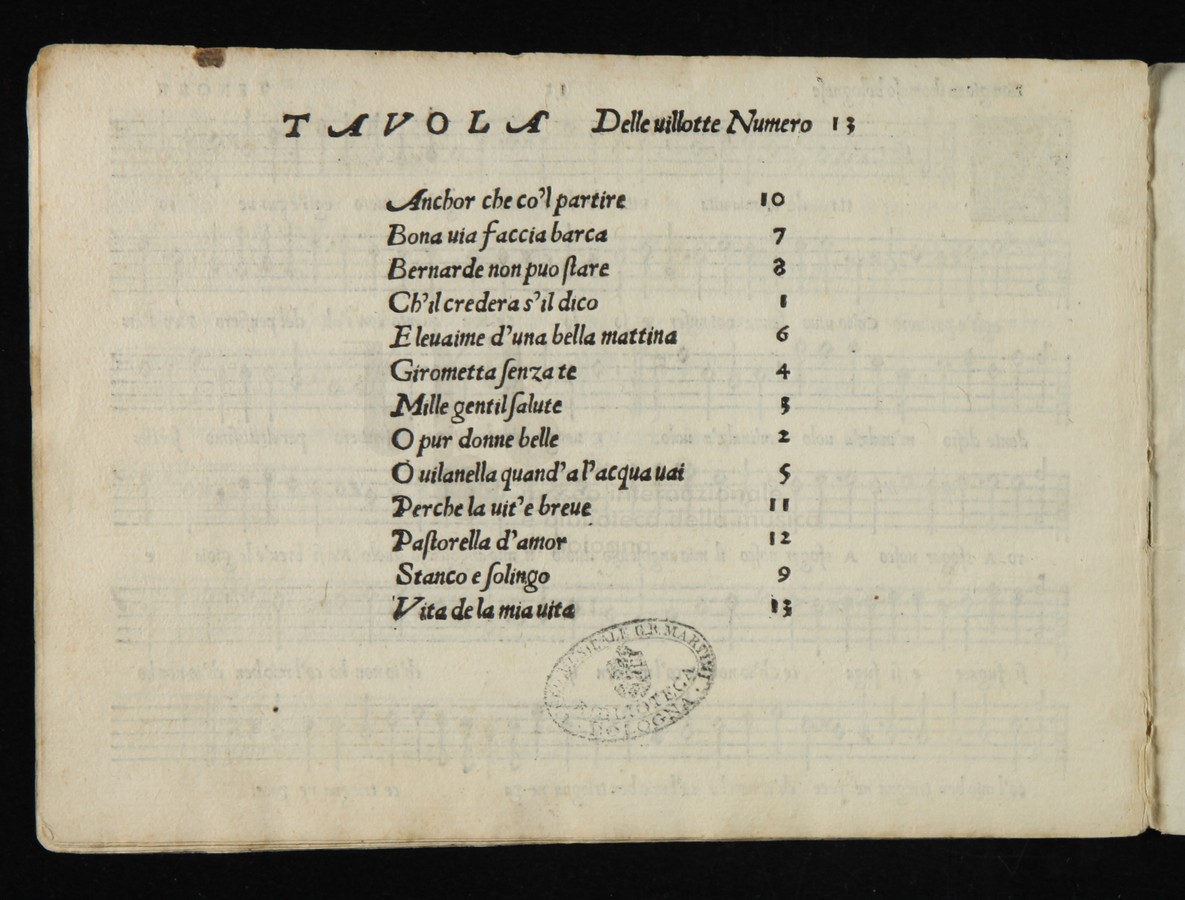 TAVOLA Delle uillotte Numero 13
Anchor che co'l partire 10
Bona uia faccia barca 7
Bernarde non puo ſtare 8
Ch'il credera s'il dico 1
E leuaime d'una bella mattina 6
Girometta ſenza te 4
Mille gentil ſalute 3
O pur donne belle 2
O uilanella quand'a l'acqua uai 5
Perche la uit'e breue 11
Paſtorella d'amor 12
Stanco e ſolingo 9
Vita de la mia uita 13
G.B. MARTINI
BIBLIOTECA
BOLOGNA
museo internazionale
e biblioteca della musica
bologna